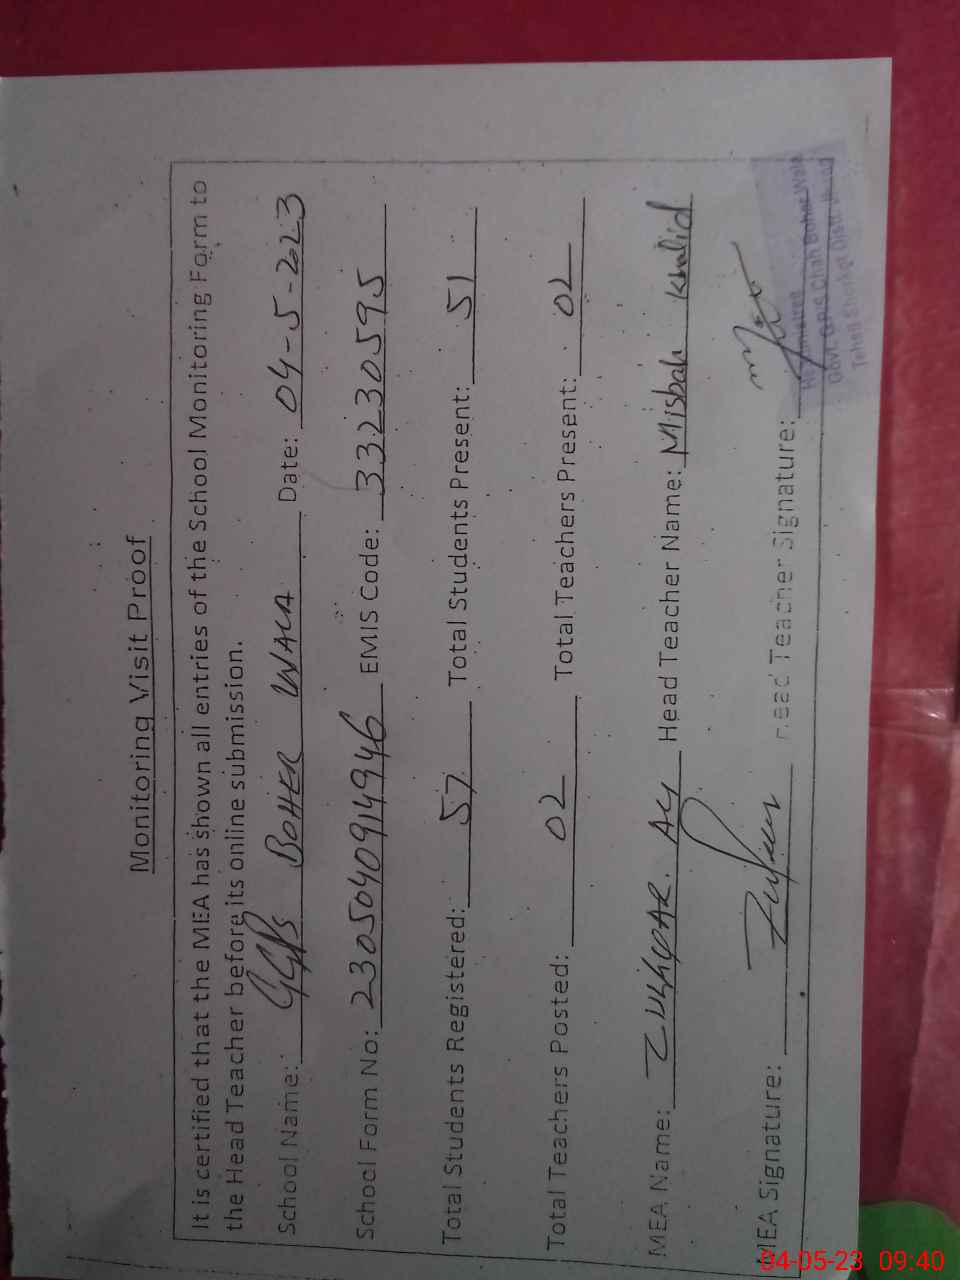 Monitoring Visit Proof
It is certified that the MEA has shown all entries of the School Monitoring Form to
the Head Teacher before its online submission.
School Name: GGPS BOHER WALA Date: 04-5-2023
School Form No: 2305040914946 EMIS Code: 33230595
Total Students Registered: 57 Total Students Present: 51
Total Teachers Posted: 02 Total Teachers Present: 02
MEA Name: ZULFIQAR. ALY Head Teacher Name: Misbah Khalid
MEA Signature: Head Teacher Signature:
Headmistress
Govt. G P/S Chah Bohar Wala
Tehsil Shorkot Distt.
04-05-23 09:40